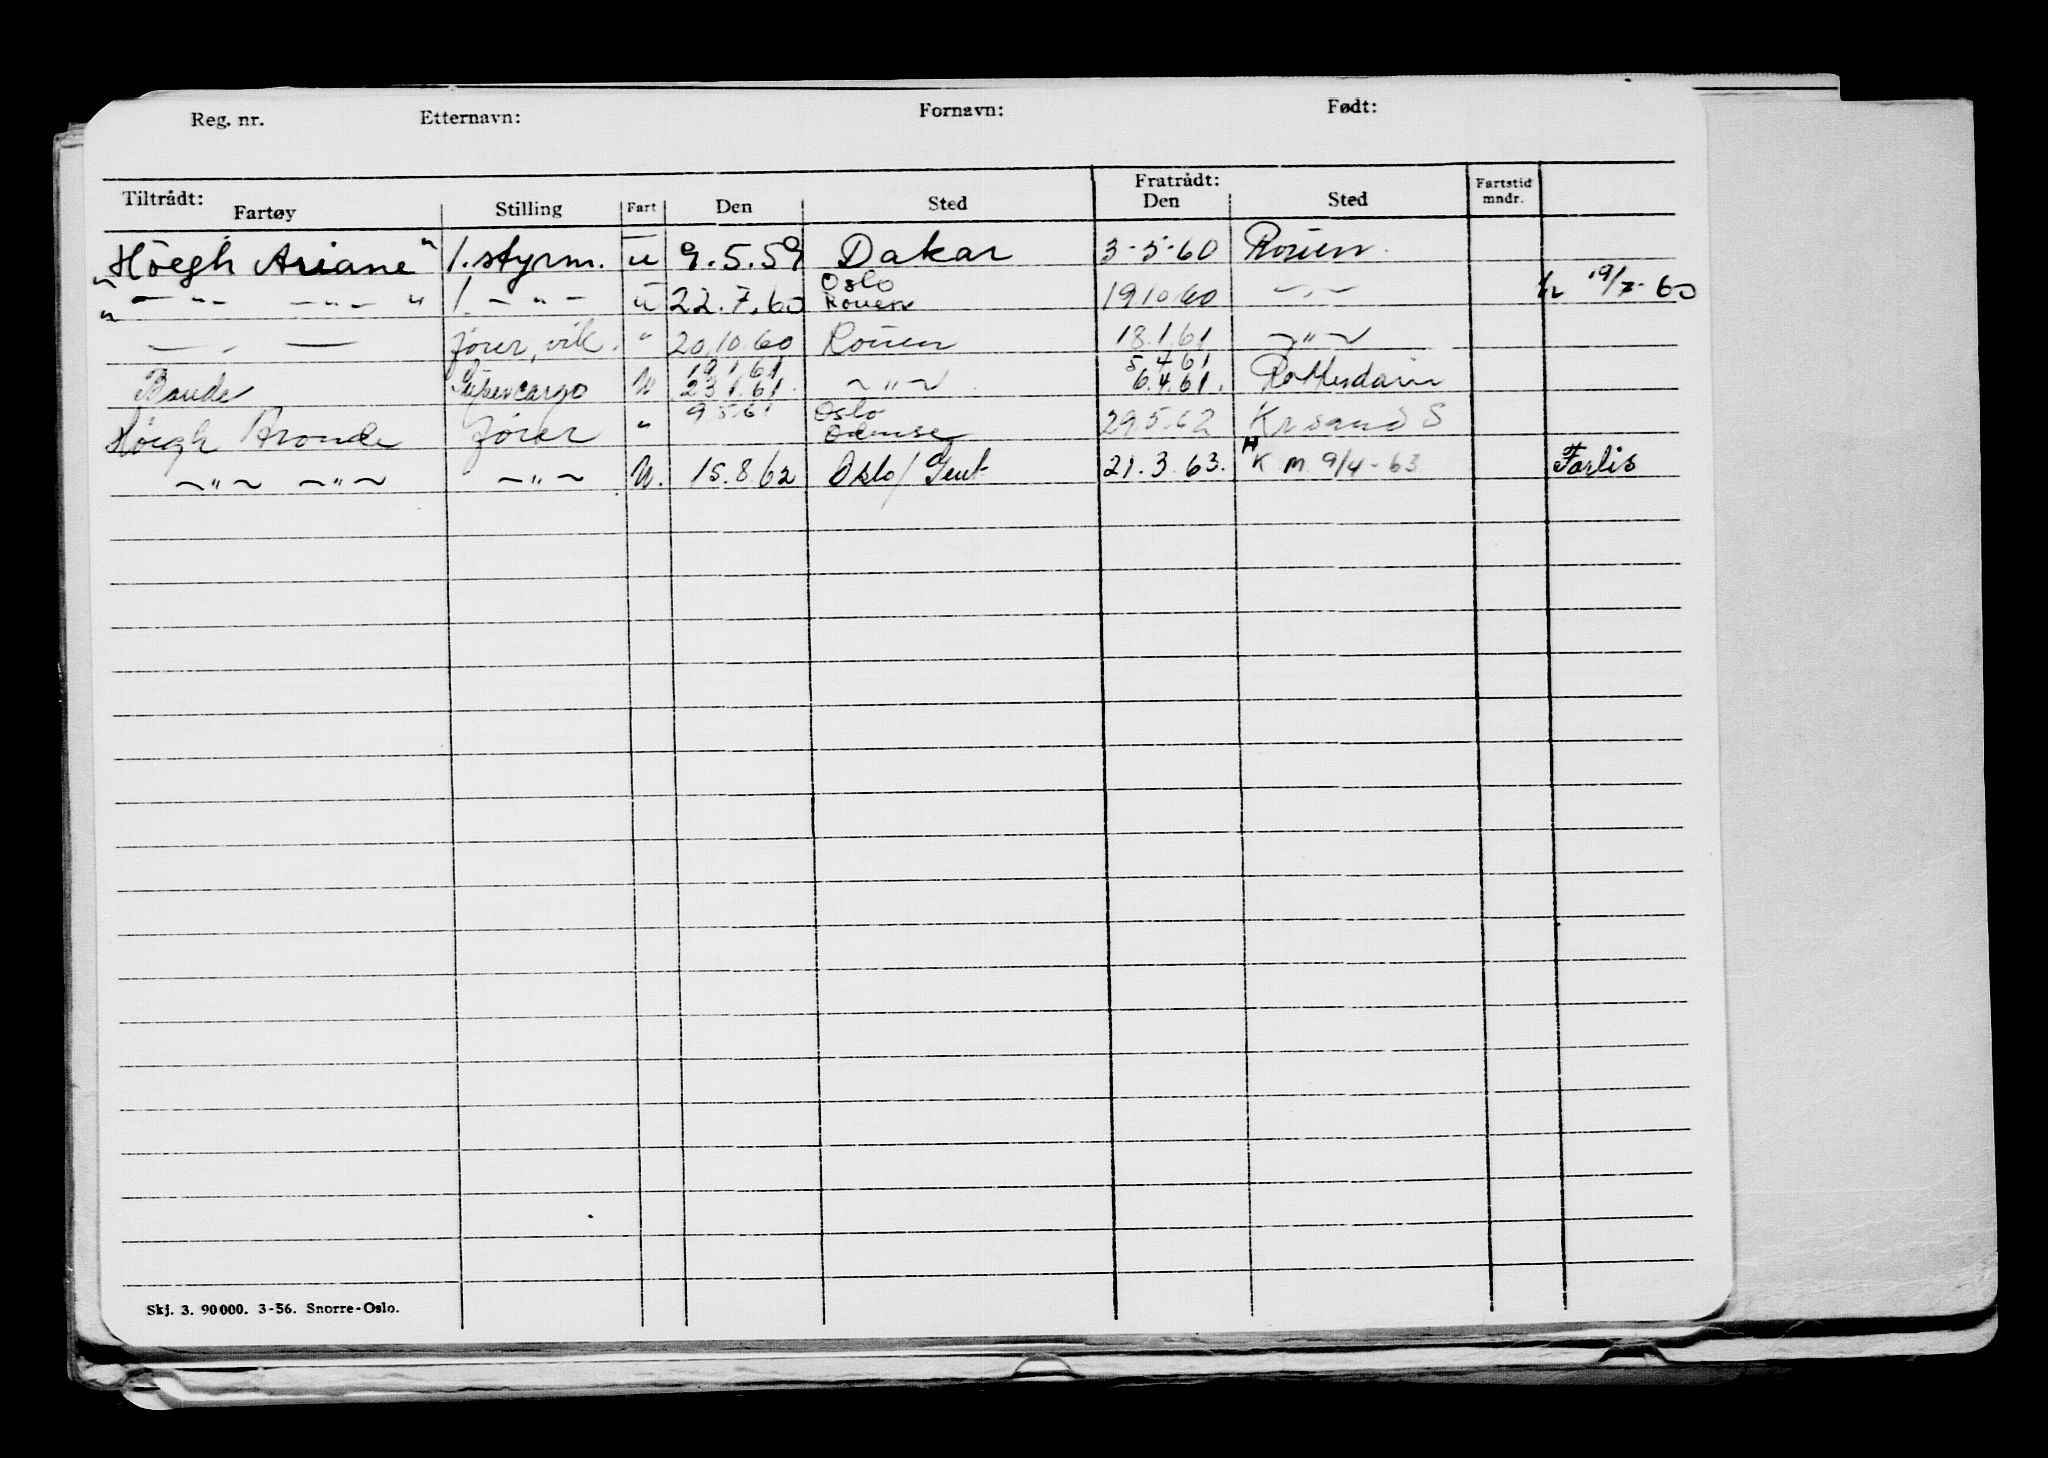 Reg. nr. Etternavn: Fornavn: Født:
Tiltrådt: Fratrådt: Fartstid
Fartøy Stilling Fart Den Sted Den Sted mndr.
"Höegh Ariane" 1. styrm. u 9.5.59 Dakar 3-5-60 Rouen.
Oslo
" — " — — " — " 1. — " — u 22.7.60 Rouen 19.10.60 — " — 19/7-60
— " — fører, vik. " 20.10.60 Rouen 18.1.61 — " —
19.1.61 5.4.61
Baude Supercargo U 23.1.61. — " — 6.4.61. Rotterdam
9.5.61 Oslo
Höegh Aronde fører " Odense 29.5.62 Krsand S
— " — — " — — " — U. 15.8.62 Oslo/Gent 21.3.63. K M 9/4-63 Farlis
Skj. 3. 90000. 3-56. Snorre-Oslo.